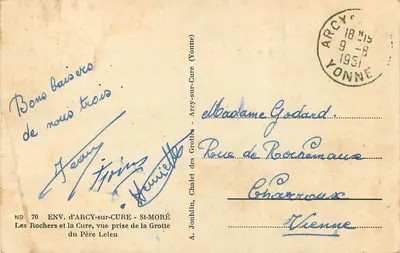 Bons baisers
de nous trois.
Jean
Henriette
ND 70 ENV. d'ARCY-sur-CURE - St-MORÉ
Les Rochers et la Cure, vue prise de la Grotte
du Père Leleu
A. Joublin, Chalet des Grottes - Arcy-sur-Cure (Yonne)
ARCY-S
18 H15
9 -8
1951
YONNE
Madame Godard
Rue de Rochemaux
Charroux
Vienne